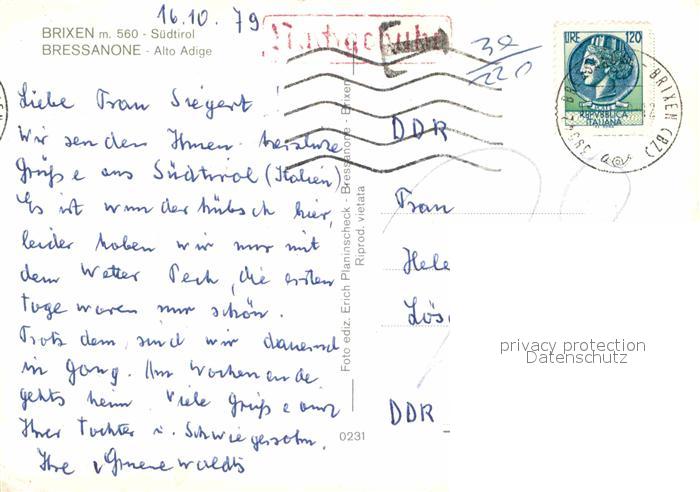 16.10.79
BRIXEN m. 560 - Südtirol
BRESSANONE - Alto Adige
Nachgebühr
30
220
LIRE 120
REPVBBLICA
ITALIANA
BRIXEN (BZ)
Liebe Frau Siegert!
Wir senden Ihnen herzliche
Grüße aus Südtirol (Italien)
Es ist wunderhübsch hier,
leider haben wir nur mit
dem Wetter Pech, die ersten
Tage waren nur schön.
Trotzdem sind wir dauernd
in Gang. Am Wochenende
gehts heim Viele Grüße auch
Ihrer Tochter u. Schwiegersohn.
Ihre Grunewaldts
Foto ediz. Erich Planinscheck - Bressanone - Brixen
Riprod. vietata
0231
DDR
Frau
Hele
Lös
DDR
privacy protection
Datenschutz